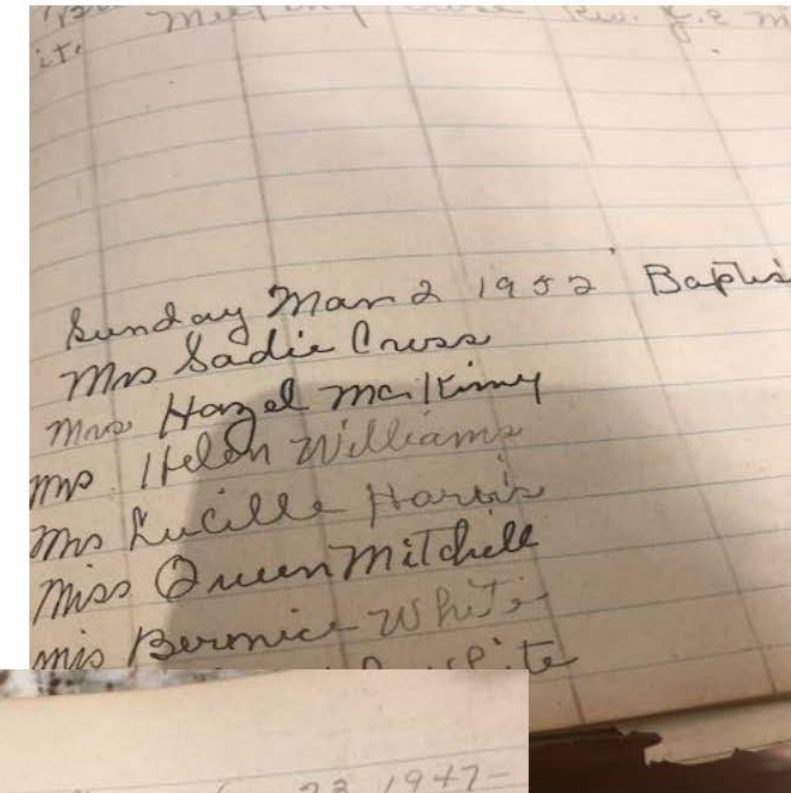 meeting Rev. J. E. M
it.
Sunday Mar 2 1952 Baptis
Mrs Sadie Cross
Mrs Hazel McKinney
Mrs. Helen Williams
Mrs Lucille Harris
Miss Queen Mitchell
Mis Bernice White
23 1947-